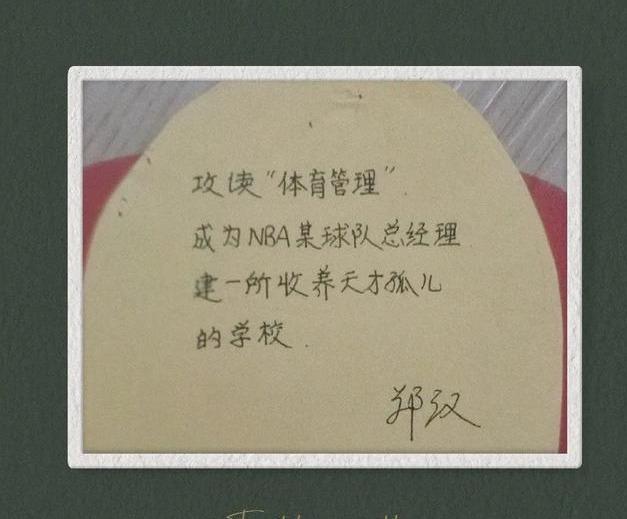 攻读“体育管理”.
成为NBA某球队总经理
建一所收养天才孤儿
的学校.
郑汉